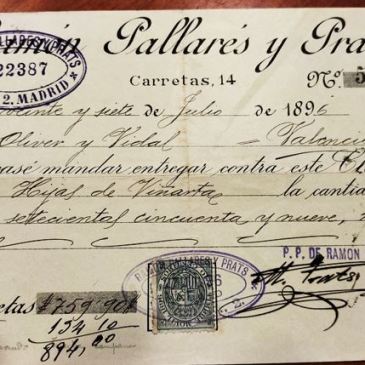 Ramón Pallarés y Prats
PALLARES Y PRATS
22387
2. MADRID
Carretas, 14
Nº 5
veinte y siete de Julio de 1896
Oliver y Vidal = Valencia
mandar entregar contra este
Hijas de Viñarta la cantia
setecientas cincuenta y nueve,
P. P. DE RAMON
RAMON PALLARES Y PRATS
etas #759,90#
134,10
894,00